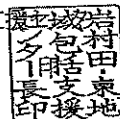 岩村田・東地
域包括支援
センター長印